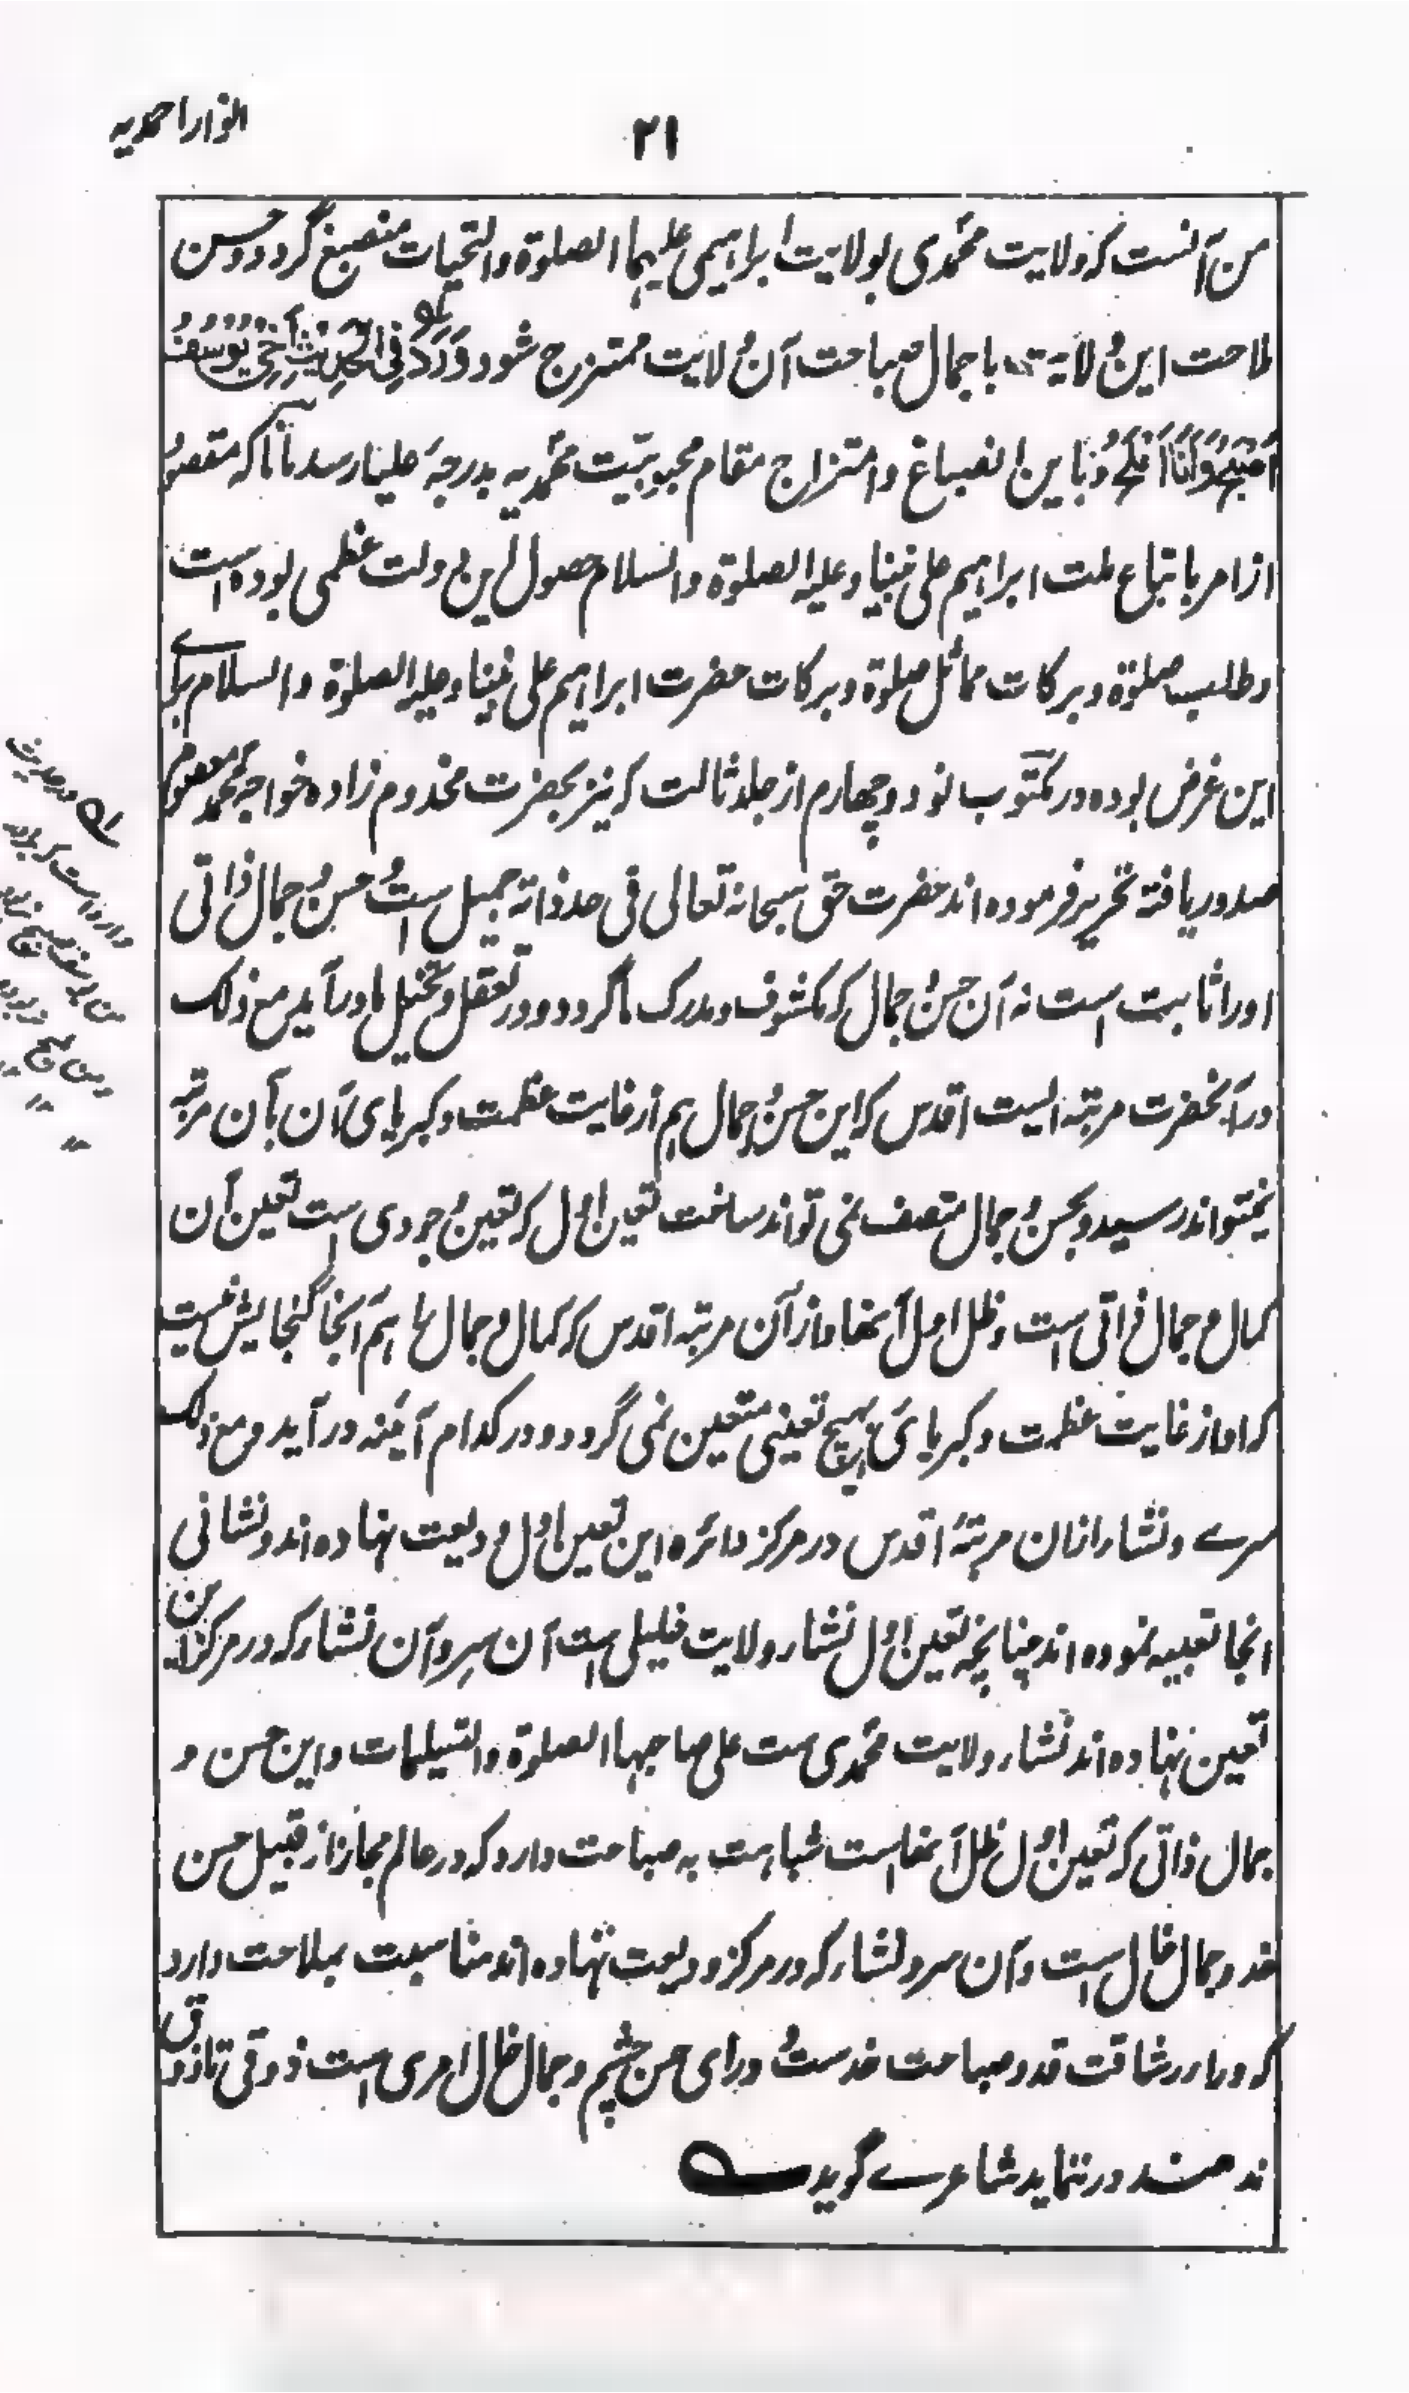 انوار احمدیه
۲۱
من آنست که ولایت محمدی بولایت ابراهیمی علیهما الصلوة والتحیات منصبغ گردد و حسن
ملاحت این ولایت با جمال صباحت آن ولایت ممتزج شود وَرَدَ فِی الْحَدِیْثِ أَخِیْ یُوْسُفُ
أَصْبَحُ وَأَنَا أَمْلَحُ و باین انصباغ و امتزاج مقام محبوبیّت محمدیه بدرجهٔ علیا رسد مانا که مقصود
از امر باتباع ملت ابراهیم علی نبینا وعلیه الصلوة والسلام حصول این دولت عظمی بوده است
وطلب صلوة و برکات مماثل صلوة و برکات حضرت ابراهیم علی نبینا وعلیه الصلوة والسلام برای
این غرض بوده و در مکتوب نود و چهارم از جلد ثالث که نیز بحضرت مخدوم زاده خواجه محمد معصوم
صدور یافته تحریر فرموده اند حضرت حق سبحانه تعالی فی حد ذاته جمیل است و حسن و جمال ذاتی
او را ثابت است نه آن حسن و جمال که مکشوف و مدرک ما گردد و در تعقل و تخیل ما در آید مع ذلک
در آنحضرت مرتبه ایست اقدس که این حسن و جمال هم از غایت عظمت و کبریای آن بآن مرتبه
نمیتواند رسید و بحسن و جمال متصف نمی تواند ساخت تعین اول که تعین وجودی است تعین آن
کمال و جمال ذاتی است و ظل اول آنها و از آن مرتبه اقدس که کمال و جمال را هم آنجا گنجایش نیست
که او از غایت عظمت و کبریائی بهیچ تعینی متعین نمی گردد و در کدام آئینه در آید و مع ذلک
سرے و نشا از ان مرتبهٔ اقدس در مرکز دائره این تعین اول ودیعت نهاده اند و نشانی
آنجا تعبیه نموده اند چنانچه تعین اول نشاء ولایت خلیلی است آن سِر و آن نشاء که در مرکز این
تعین نهاده اند نشاء ولایت محمدی ست علی صاحبها الصلوة والتسلیمات و این حسن و
جمال ذاتی که تعین اول ظل آنهاست شباهت به صباحت دارد که در عالم مجاز از قبیل حسن
خد و جمال خال است و آن سر و نشاء که در مرکز ودیعت نهاده اند مناسبت بملاحت دارد
که ورای رشاقت قد و صباحت خدست و ورای حسن چشم و جمال خال امری است ذوقی تا ذوق
ندهند در نیابد شاعرے گوید
له در حدیث
وارد است که برادر
من یوسف صبیح تر بود
و من ملیح